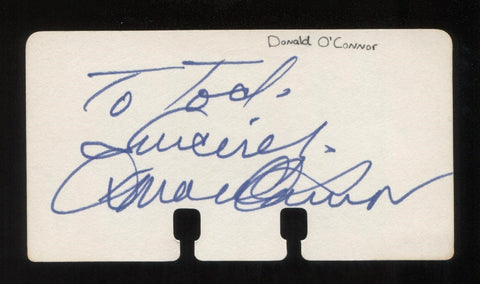 Donald O'Connor
To Tod.
Sincerely.
Donald O'Connor